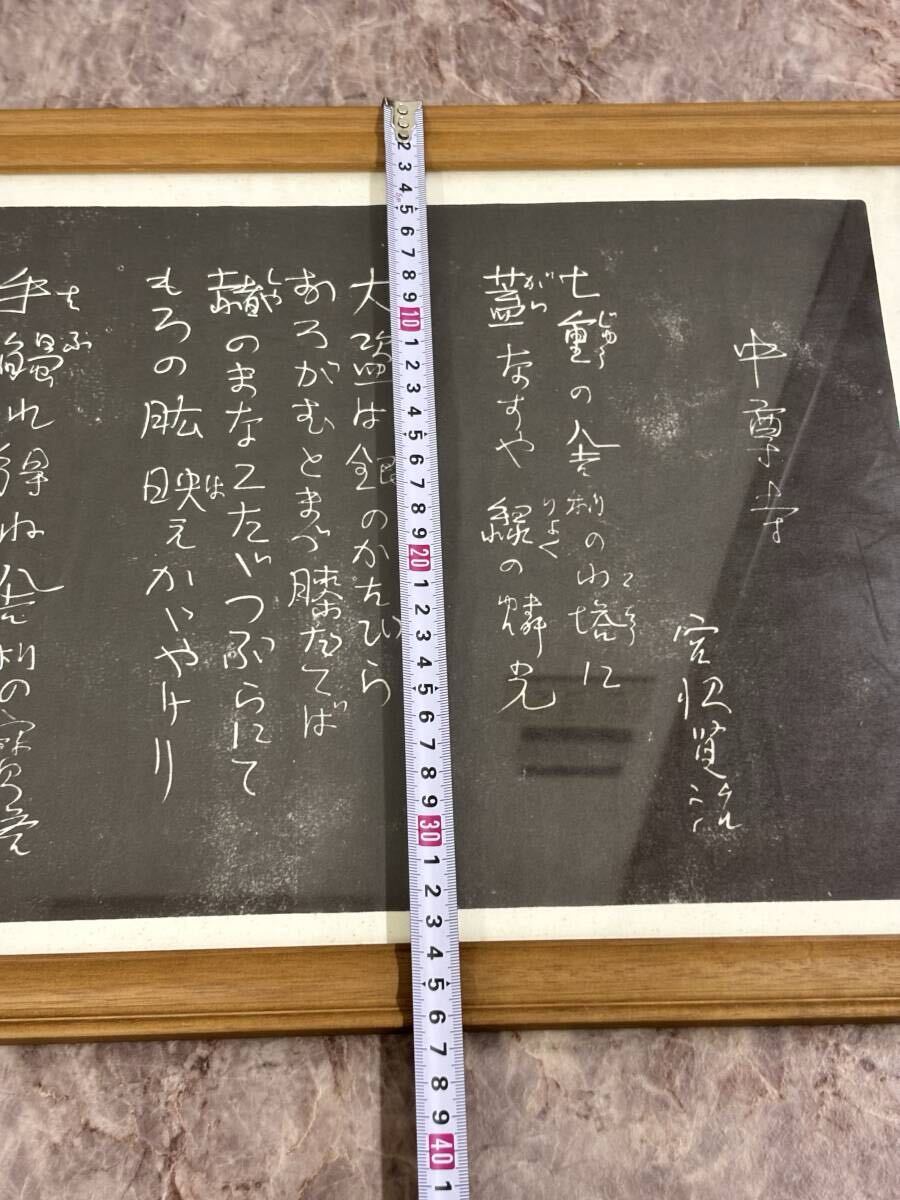 中尊寺
宮沢賢治
七重の舎利の小塔に
じゅう り こたふ
蓋なすや緑の燐光
がい りょく
大盗は銀のかたびら
おろがむとまづ膝だてば
赭のまなこたゞつぶらにて
しや
もろの肱映えかゞやけり
は
手觸れ得ね舎利の寳塔
たぶ
2 3 4 5 6 7 8 9 10 1 2 3 4 5 6 7 8 9 20 1 2 3 4 5 6 7 8 9 30 1 2 3 4 5 6 7 8 9 40 1